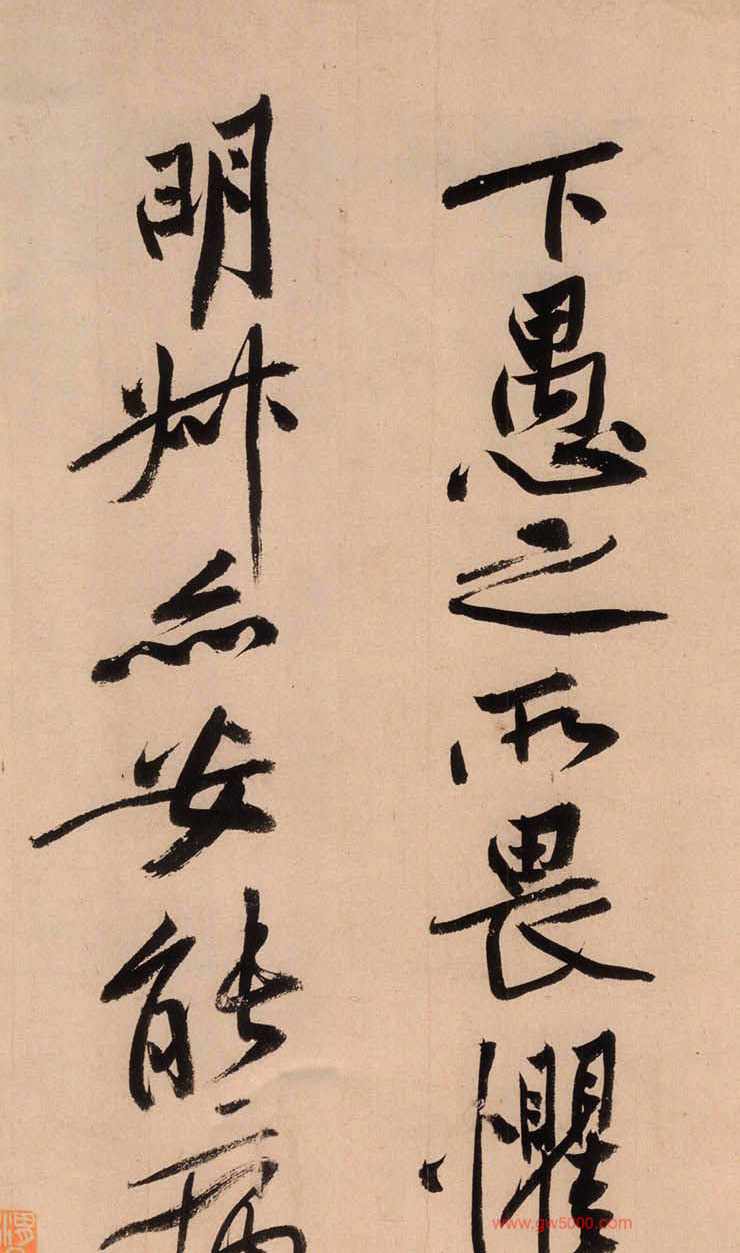 下愚之所畏懼
明叔亦安能病
www.gw5000.com